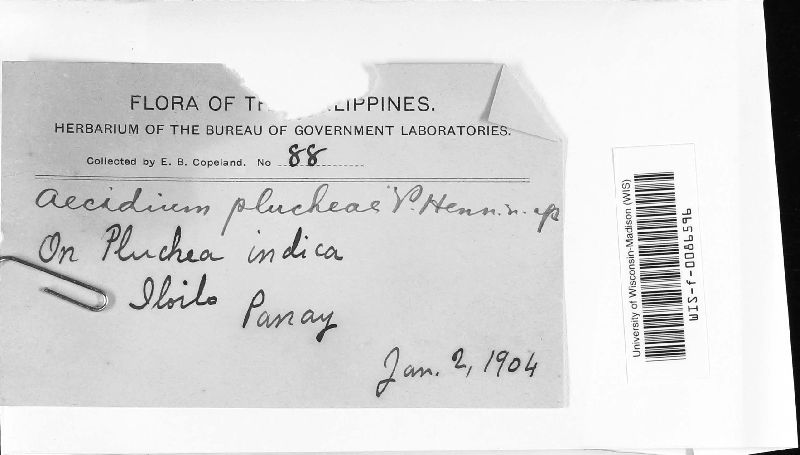 FLORA OF TH LIPPINES.
HERBARIUM OF THE BUREAU OF GOVERNMENT LABORATORIES.
Collected by E. B. Copeland. No 88
Aecidium plucheae P. Henn. n. sp
On Pluchea indica
Iloilo Panay
Jan. 2, 1904
University of Wisconsin-Madison (WIS)
WIS-f-0086596